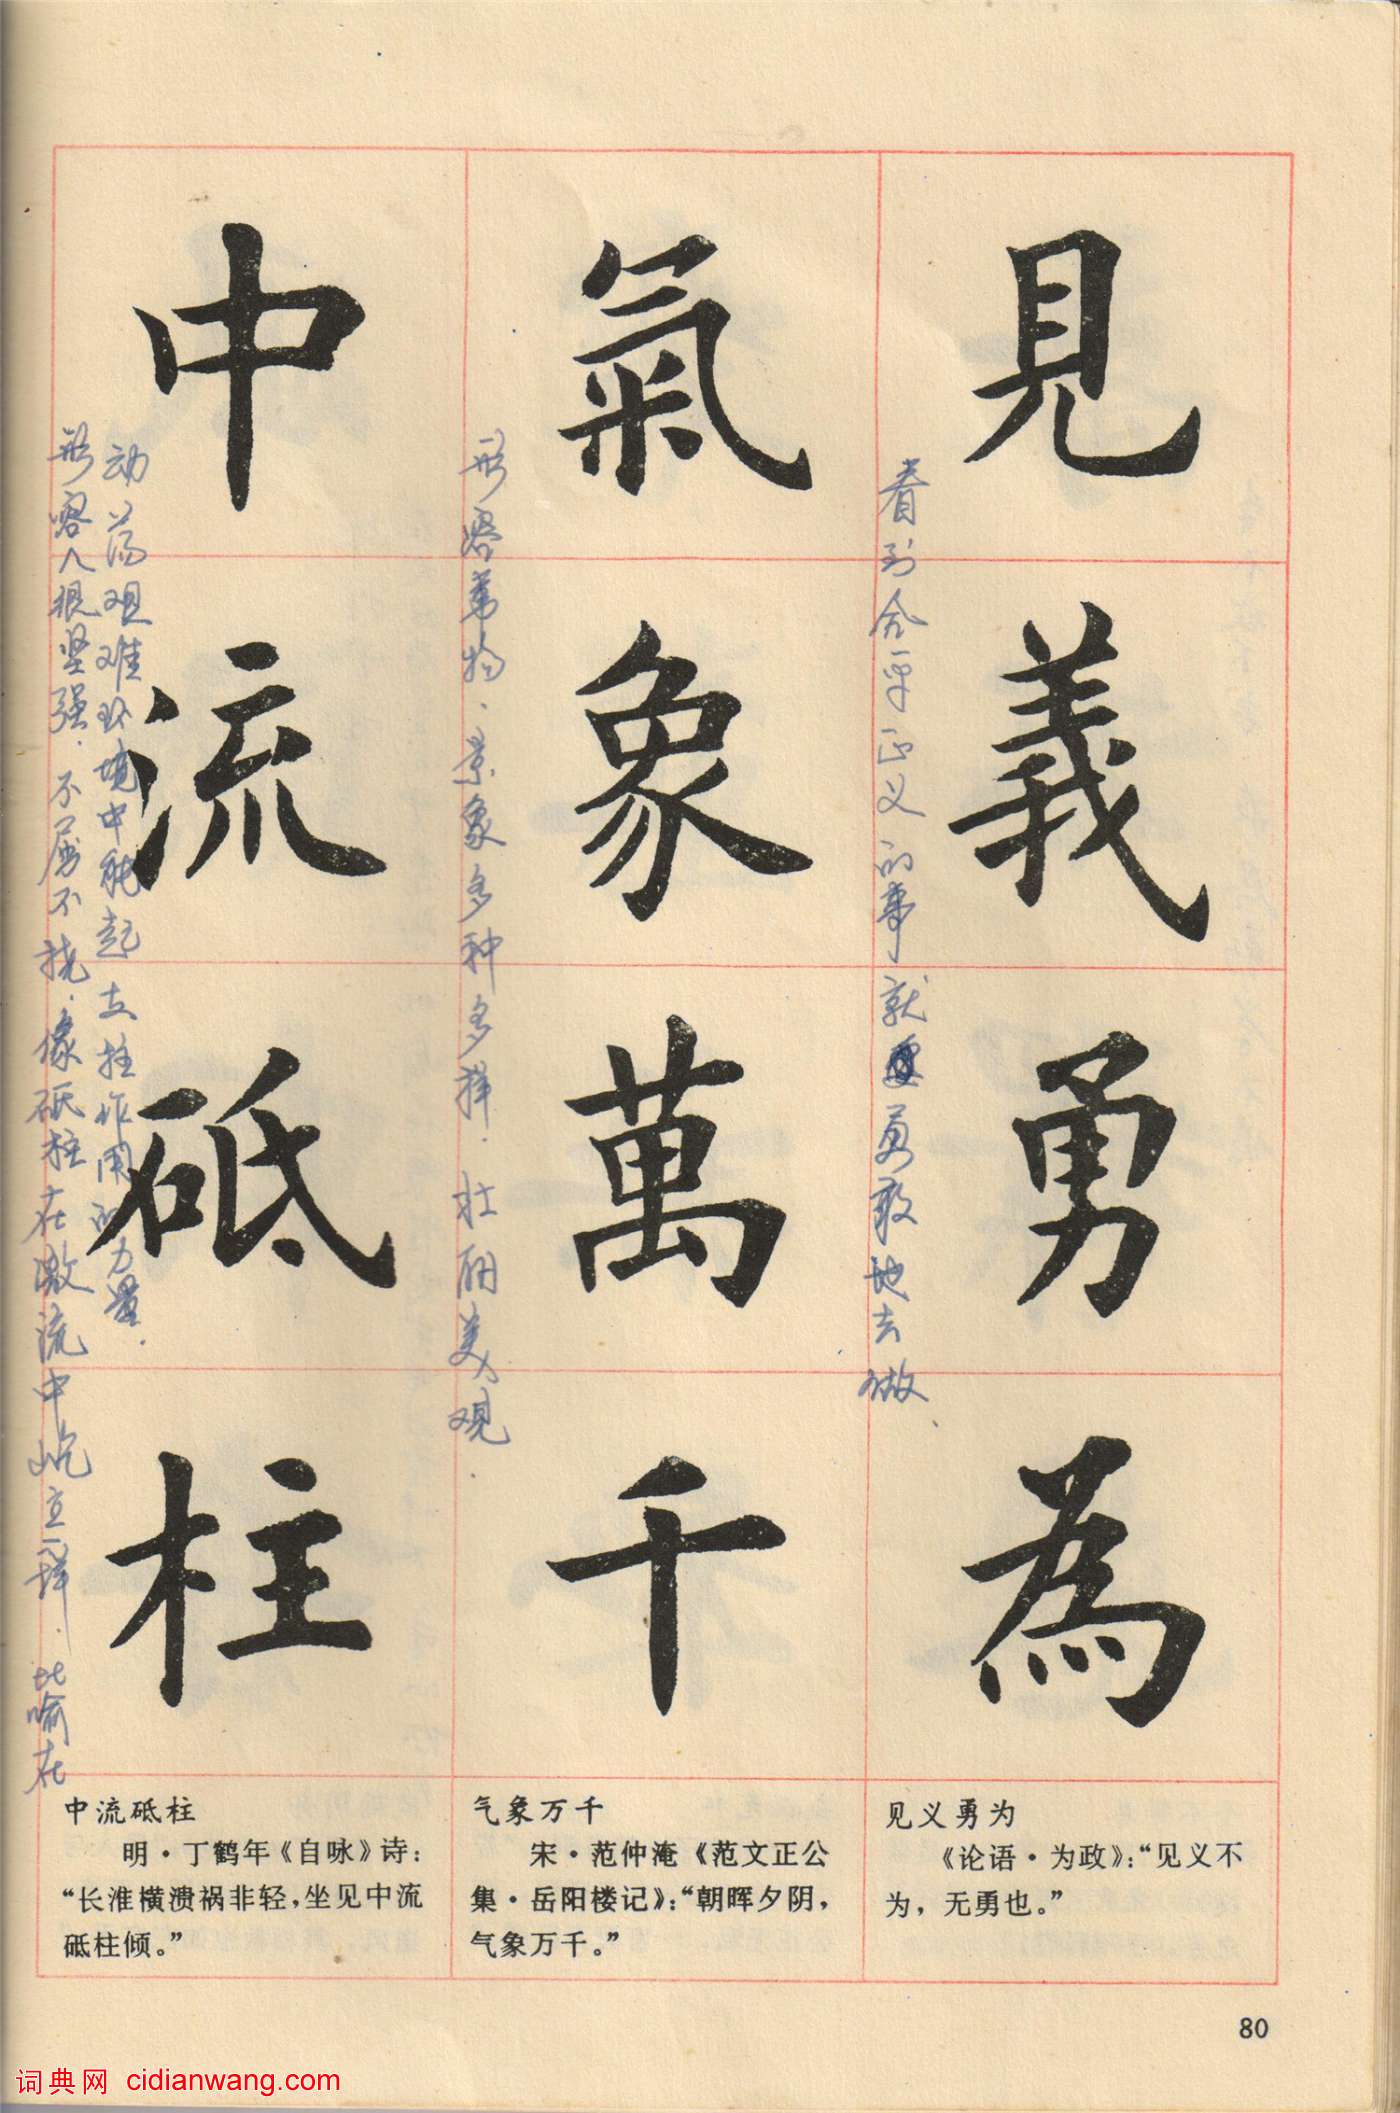 見義勇為
看到合乎正义的事就勇敢地去做
氣象萬千
形容事物、景象多种多样、壮丽美观.
中流砥柱
形容人很坚强、不屈不挠、像砥柱在激流中屹立一样、比喻在
动荡艰难环境中能起支柱作用的力量.
见义勇为
《论语·为政》:“见义不
为，无勇也。”
气象万千
宋·范仲淹《范文正公
集·岳阳楼记》:“朝晖夕阴，
气象万千。”
中流砥柱
明·丁鹤年《自咏》诗:
“长淮横溃祸非轻，坐见中流
砥柱倾。”
80
词典网 cidianwang.com